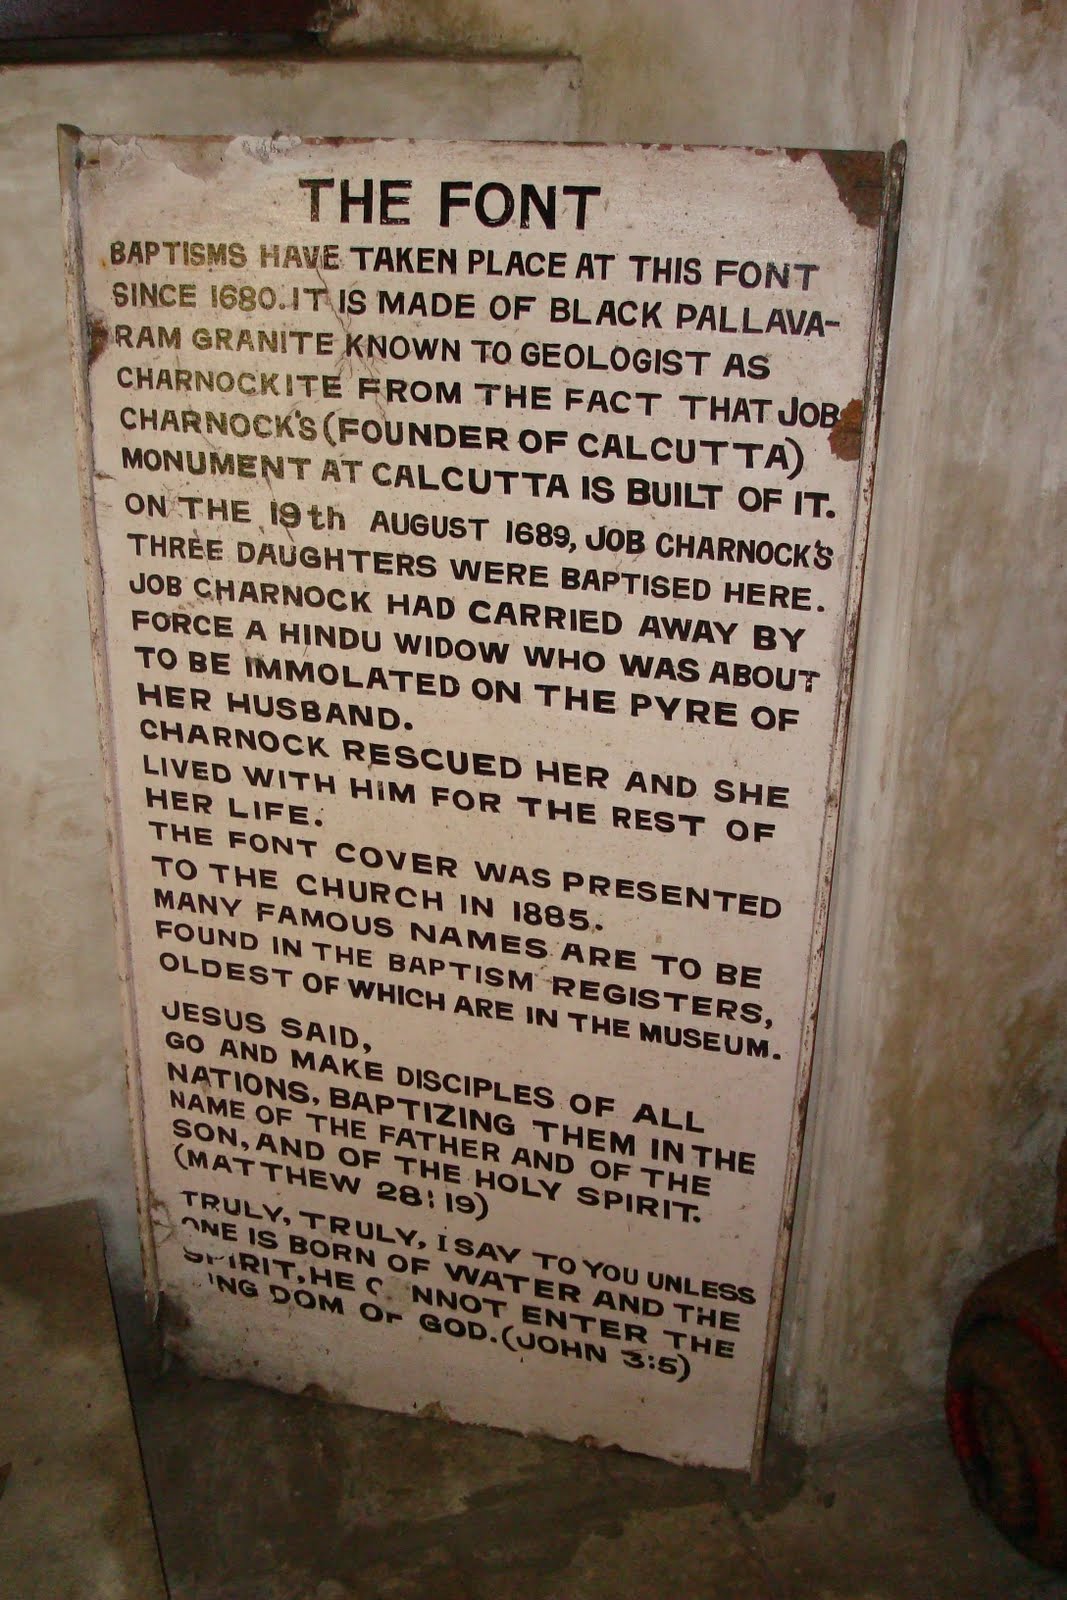 THE FONT
BAPTISMS HAVE TAKEN PLACE AT THIS FONT
SINCE 1680. IT IS MADE OF BLACK PALLAVA-
RAM GRANITE KNOWN TO GEOLOGIST AS
CHARNOCKITE FROM THE FACT THAT JOB
CHARNOCK'S (FOUNDER OF CALCUTTA)
MONUMENT AT CALCUTTA IS BUILT OF IT.
ON THE 19th AUGUST 1689, JOB CHARNOCK'S
THREE DAUGHTERS WERE BAPTISED HERE.
JOB CHARNOCK HAD CARRIED AWAY BY
FORCE A HINDU WIDOW WHO WAS ABOUT
TO BE IMMOLATED ON THE PYRE OF
HER HUSBAND.
CHARNOCK RESCUED HER AND SHE
LIVED WITH HIM FOR THE REST OF
HER LIFE.
THE FONT COVER WAS PRESENTED
TO THE CHURCH IN 1885.
MANY FAMOUS NAMES ARE TO BE
FOUND IN THE BAPTISM REGISTERS,
OLDEST OF WHICH ARE IN THE MUSEUM.
JESUS SAID,
GO AND MAKE DISCIPLES OF ALL
NATIONS, BAPTIZING THEM IN THE
NAME OF THE FATHER AND OF THE
SON, AND OF THE HOLY SPIRIT.
(MATTHEW 28:19)
TRULY, TRULY, I SAY TO YOU UNLESS
ONE IS BORN OF WATER AND THE
SPIRIT, HE C NNOT ENTER THE
ING DOM OF GOD. (JOHN 3:5)